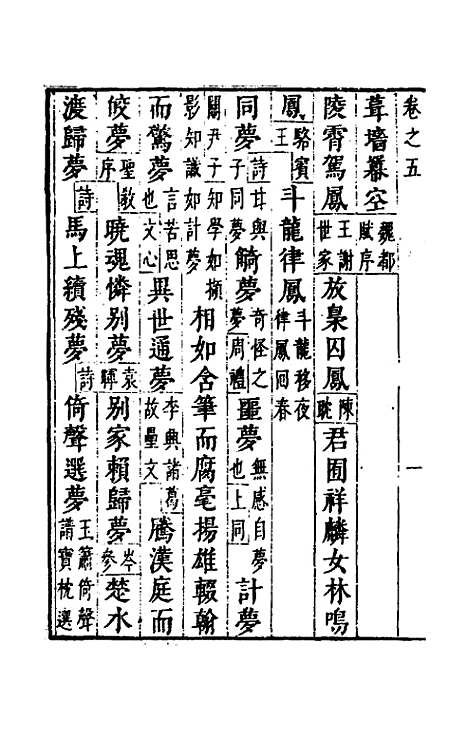 卷之五　一
葺墻冪空魏都賦序
陵霄駕鳳王謝世家放梟囚鳳陳耽君囿祥麟女林鳴
鳳駱賓王斗龍律鳳斗龍移夜律鳳囘春
同夢詩甘與子同夢觭夢奇怪之夢周禮噩夢無感自夢也上同計夢
關尹子知學如擷影知識如計夢相如含筆而腐毫揚雄輟翰
而驚夢言苦思也文心異世通夢李興諸葛故壘文騰漢庭而
皎夢聖教序曉魂憐别夢袁暉别家頼歸夢岑參楚水
渡歸夢詩馬上續殘夢詩倚聲選夢王簫倚聲譜寳枕選